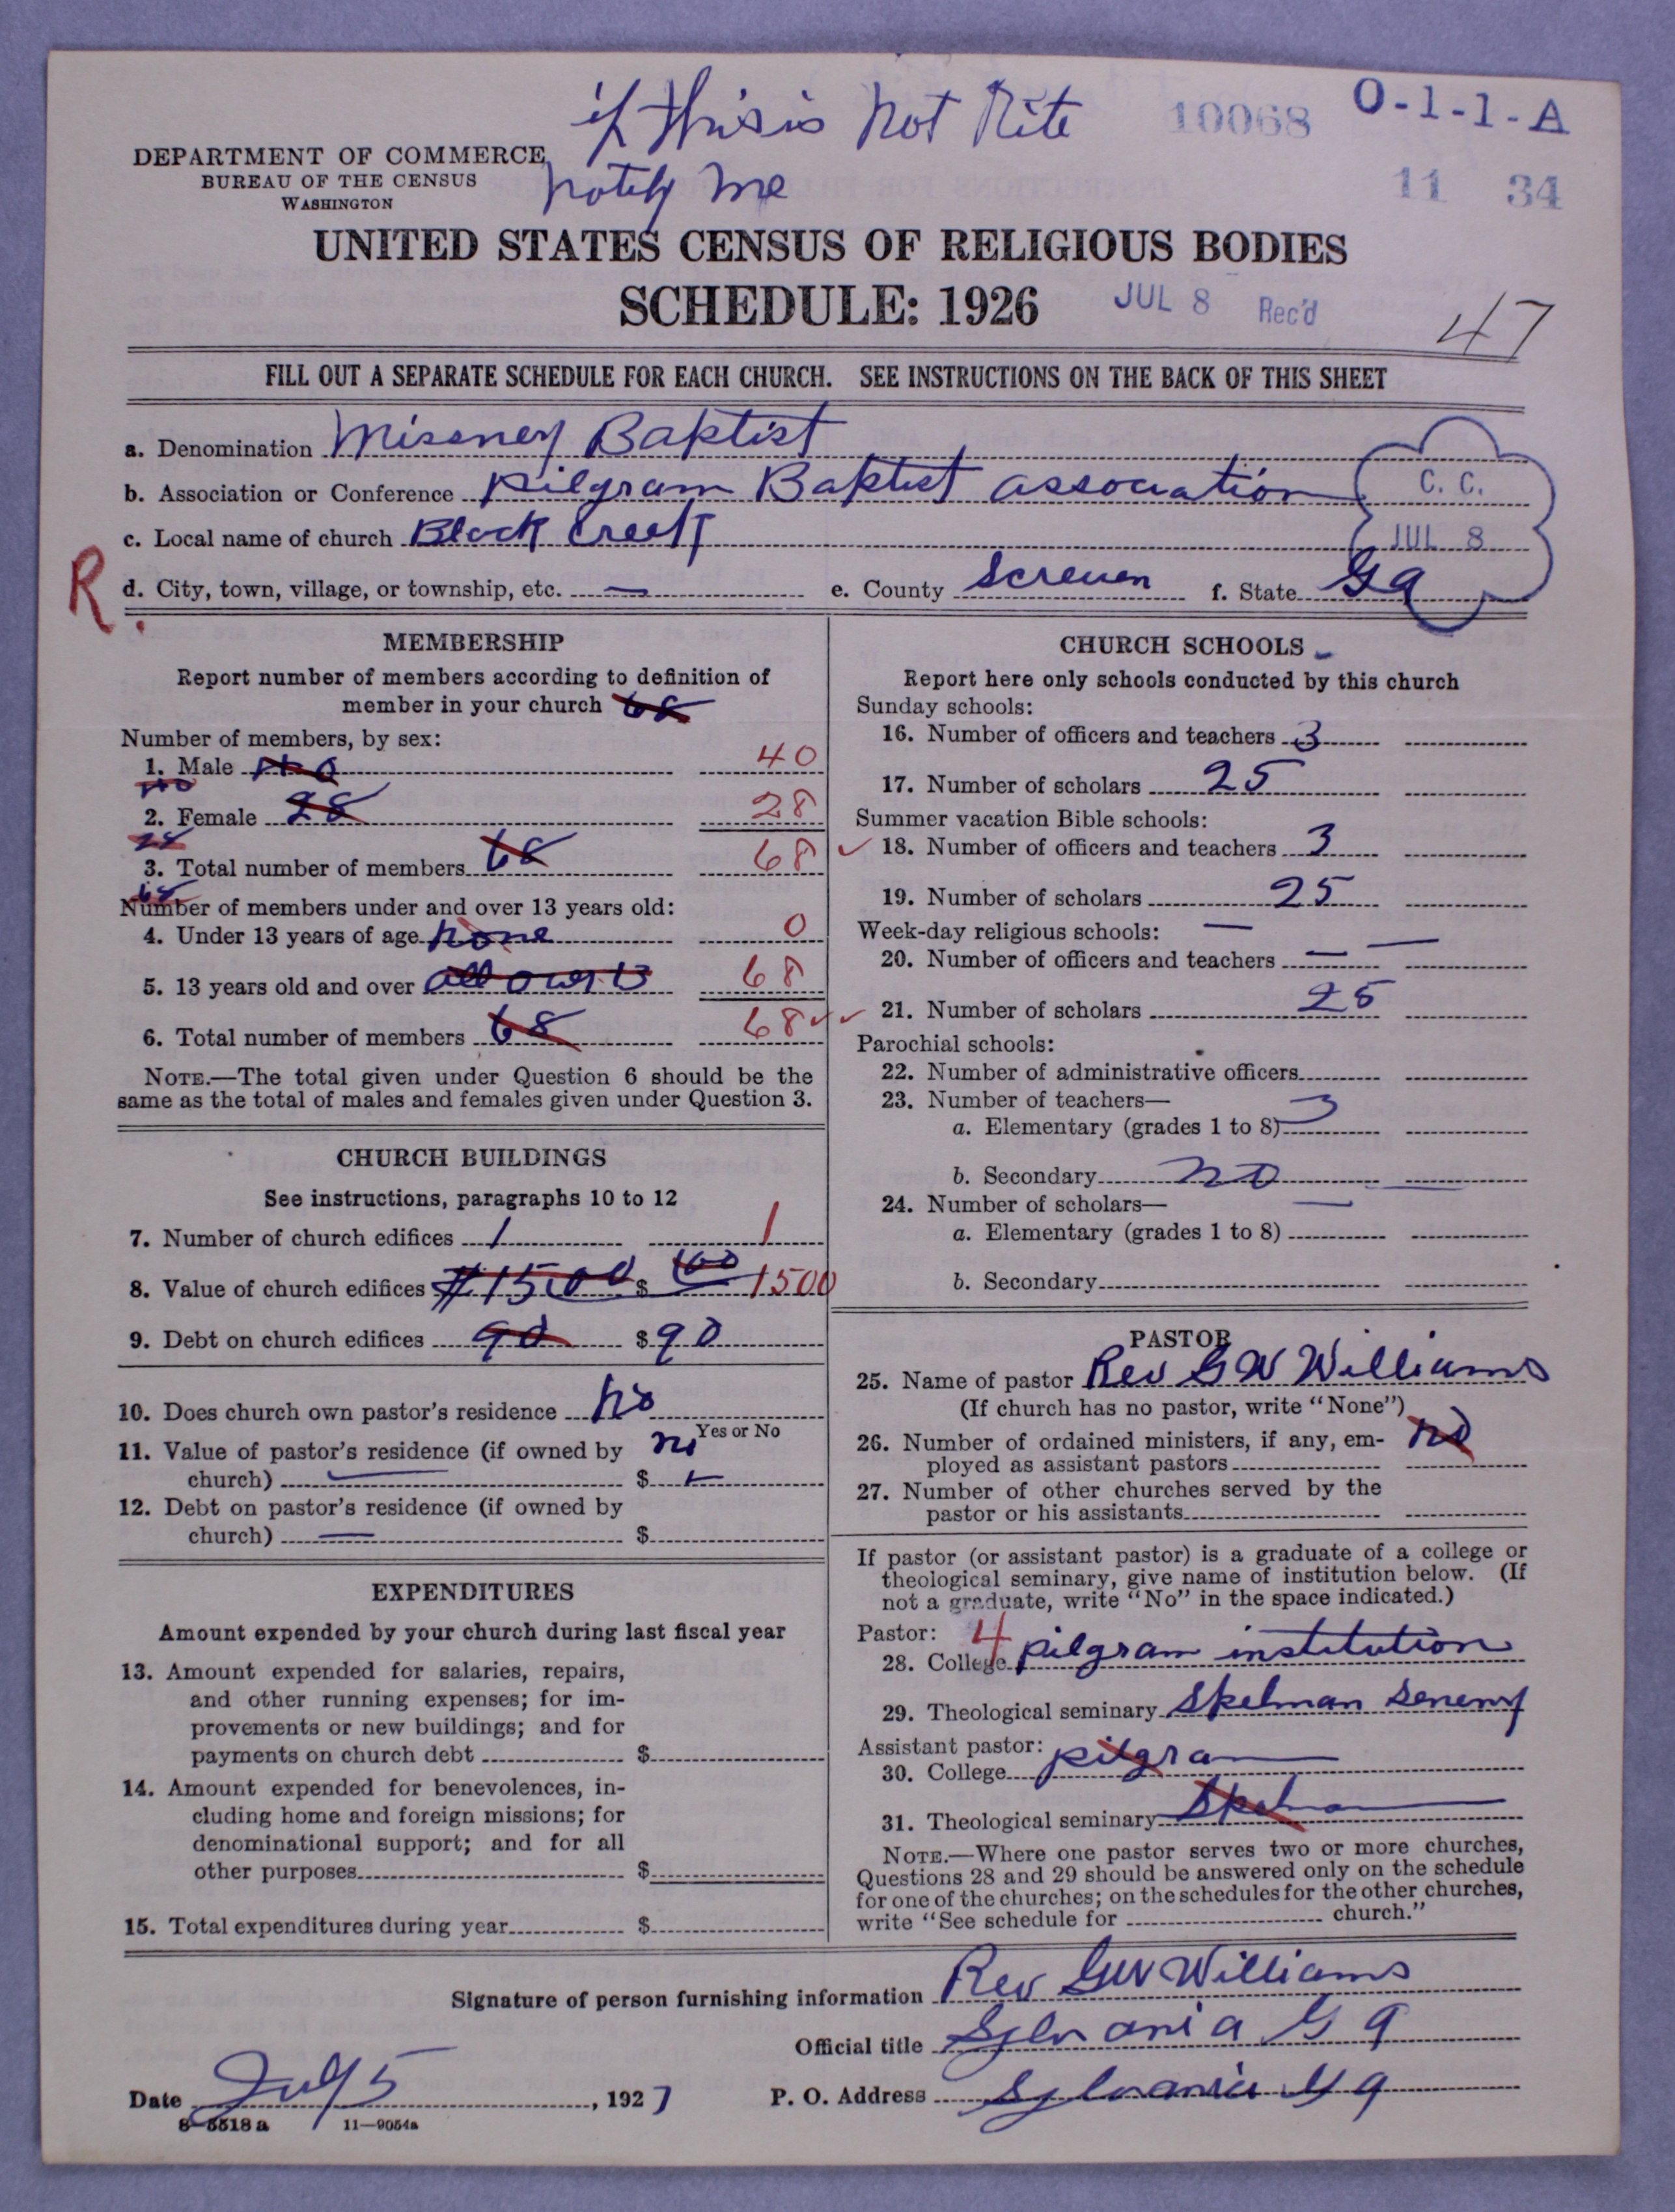 if this is Not Rite
notify me
10068 O-1-1-A
11 34
DEPARTMENT OF COMMERCE
BUREAU OF THE CENSUS
WASHINGTON
UNITED STATES CENSUS OF RELIGIOUS BODIES
SCHEDULE: 1926
JUL 8 Rec'd
47
FILL OUT A SEPARATE SCHEDULE FOR EACH CHURCH. SEE INSTRUCTIONS ON THE BACK OF THIS SHEET
a. Denomination Missney Baptist
b. Association or Conference pilgram Baptist association
C. C.
JUL 8
c. Local name of church Black Creek
R.
d. City, town, village, or township, etc. — e. County Screven f. State Ga
MEMBERSHIP
Report number of members according to definition of
member in your church 68
Number of members, by sex:
1. Male 40 40
40
2. Female 28 28
28
3. Total number of members 68 68
68
Number of members under and over 13 years old:
4. Under 13 years of age none 0
5. 13 years old and over all over 13 68
6. Total number of members 68 68
NOTE.—The total given under Question 6 should be the
same as the total of males and females given under Question 3.
CHURCH BUILDINGS
See instructions, paragraphs 10 to 12
7. Number of church edifices 1 1
8. Value of church edifices $1500 $ 100 1500
9. Debt on church edifices 90 $ 90
10. Does church own pastor's residence No
Yes or No
11. Value of pastor's residence (if owned by no
church) — $ —
12. Debt on pastor's residence (if owned by
church) — $
EXPENDITURES
Amount expended by your church during last fiscal year
13. Amount expended for salaries, repairs,
and other running expenses; for im-
provements or new buildings; and for
payments on church debt $
14. Amount expended for benevolences, in-
cluding home and foreign missions; for
denominational support; and for all
other purposes $
15. Total expenditures during year $
CHURCH SCHOOLS
Report here only schools conducted by this church
Sunday schools:
16. Number of officers and teachers 3
17. Number of scholars 25
Summer vacation Bible schools:
18. Number of officers and teachers 3
19. Number of scholars 25
Week-day religious schools: —
20. Number of officers and teachers — —
21. Number of scholars 25
Parochial schools:
22. Number of administrative officers
23. Number of teachers—
a. Elementary (grades 1 to 8) 3
b. Secondary no —
24. Number of scholars— —
a. Elementary (grades 1 to 8)
b. Secondary
PASTOR
25. Name of pastor Rev G W Williams
(If church has no pastor, write "None")
26. Number of ordained ministers, if any, em- no
ployed as assistant pastors
27. Number of other churches served by the
pastor or his assistants
If pastor (or assistant pastor) is a graduate of a college or
theological seminary, give name of institution below. (If
not a graduate, write "No" in the space indicated.)
Pastor: 4
28. College pilgram institution
29. Theological seminary Skelman Senemy
Assistant pastor:
30. College pilgram
31. Theological seminary Skelman
NOTE.—Where one pastor serves two or more churches,
Questions 28 and 29 should be answered only on the schedule
for one of the churches; on the schedules for the other churches,
write "See schedule for church."
Signature of person furnishing information Rev GW Williams
Official title Sylvania Ga
Date July 5, 1927 P. O. Address Sylvania Ga
8-5518 a 11—9054a